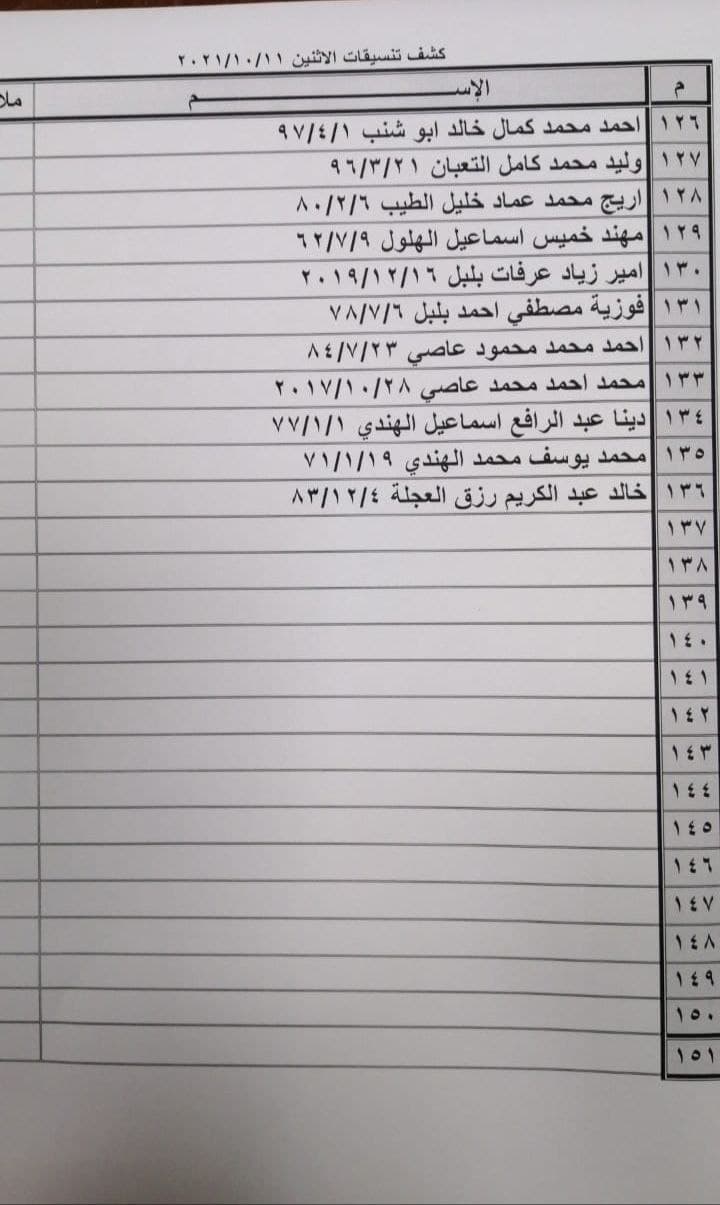 كشف تنسيقات الاثنين ٢٠٢١/١٠/١١
م الإســـــــــم ملا
١٢٦ احمد محمد كمال خالد ابو شنب ٩٧/٤/١
١٢٧ وليد محمد كامل التعبان ٩٦/٣/٢١
١٢٨ اريج محمد عماد خليل الطيب ٨٠/٢/٦
١٢٩ مهند خميس اسماعيل الهلول ٦٢/٧/٩
١٣٠ امير زياد عرفات بلبل ٢٠١٩/١٢/١٦
١٣١ فوزية مصطفي احمد بلبل ٧٨/٧/٦
١٣٢ احمد محمد محمود عاصي ٨٤/٧/٢٣
١٣٣ محمد احمد محمد عاصي ٢٠١٧/١٠/٢٨
١٣٤ دينا عبد الرافع اسماعيل الهندي ٧٧/١/١
١٣٥ محمد يوسف محمد الهندي ٧١/١/١٩
١٣٦ خالد عبد الكريم رزق العجلة ٨٣/١٢/٤
١٣٧
١٣٨
١٣٩
١٤٠
١٤١
١٤٢
١٤٣
١٤٤
١٤٥
١٤٦
١٤٧
١٤٨
١٤٩
١٥٠
١٥١